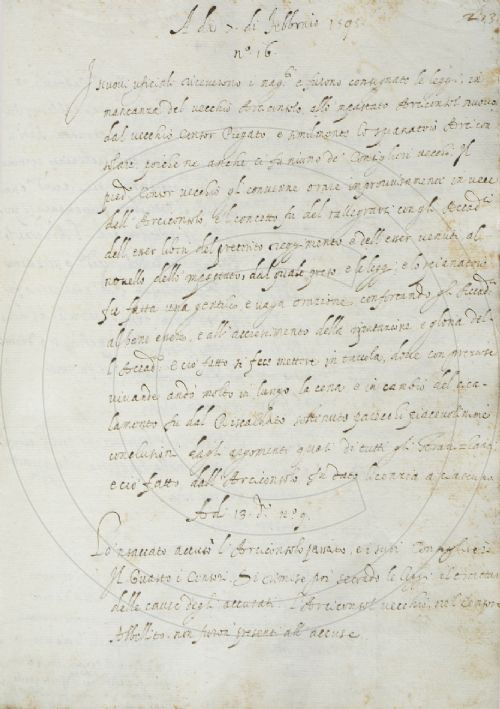 A dì 7. di Febbraio 1595.
nº. 16.
I nuovi ufiziali riceverono i mag.ti e furono consegnate le leggi; in
mancanza del vecchio Arciconsolo, allo Arciconsol nuovo
dal vecchio Censor e similmente lo Arcicon
solare, poiche ne anche ci furono de' Consiglieri vecchi. Il
Censor vecchio gli convenne orare improvvisamente in vece
dell'Arciconsolo, e 'l concetto fu del rallegrarsi con gli Accad.ci
dell'esser liberi del preterito reggimento, e dell'esser venuti al
novello dello dal quale preso e le leggi, e lo
fu fatta una gentile e vaga orazione, confortando gl'Accad.ci
al bene e all'accrescimento della riputazione e gloria del
l'Accad.a e ciò fatto si fece mettere in tavola, dove con preziose
vivande andò molto in lungo la cena, e in cambio del cica
lamento fu dal Riscaldato sostenuto piacevolissime
conclusioni, agli argomenti quasi di tutti gli
e ciò fatto dall'Arciconsolo fu data licenzia a ciascuno.
A dì 13. dº. nº. 9.
Lo 'nsaccato accusò l'Arciconsolo passato, e i suoi Consiglieri
Il Guasto i Censori. Si rimise poi secondo le leggi
delle cause degli accusati. l'Arciconsol vecchio, e 'l Censore
non furon presenti all'accuse.